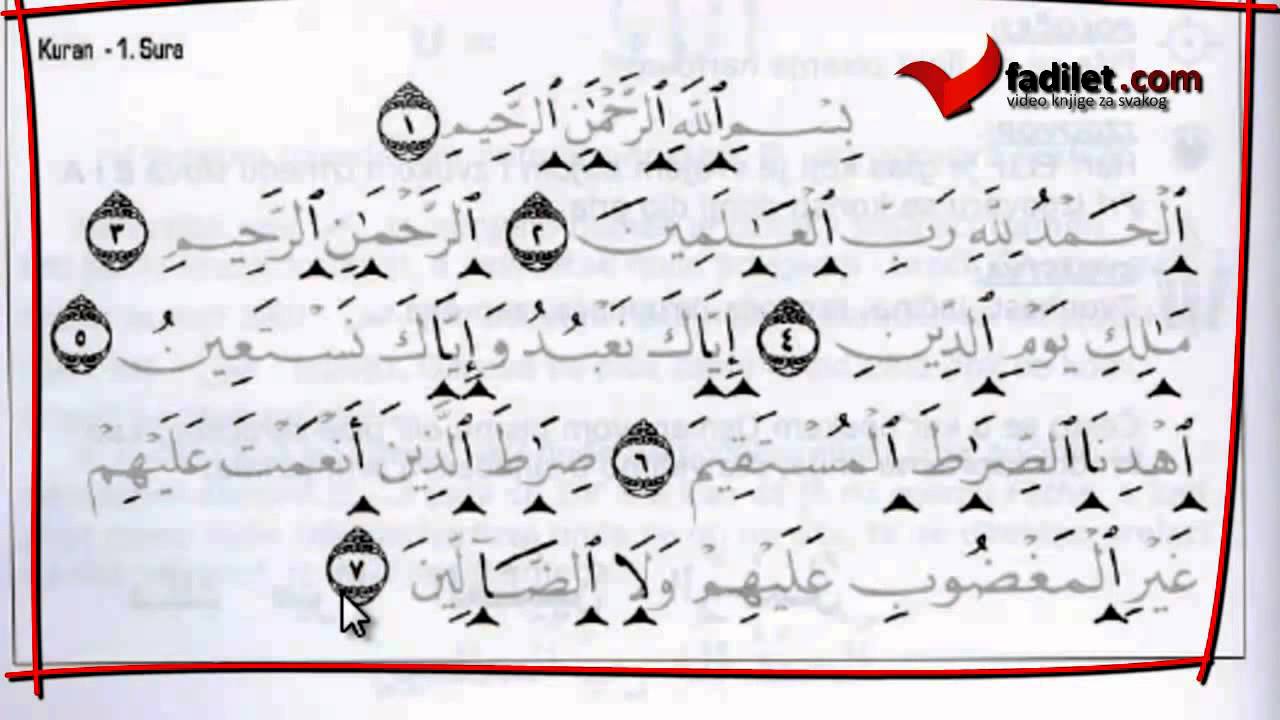 Kuran - 1. Sura
fadilet.com
video knjige za svakog
بِسْمِ ٱللَّهِ ٱلرَّحْمَٰنِ ٱلرَّحِيمِ ١
ٱلْحَمْدُ لِلَّهِ رَبِّ ٱلْعَٰلَمِينَ ٢ ٱلرَّحْمَٰنِ ٱلرَّحِيمِ ٣
مَٰلِكِ يَوْمِ ٱلدِّينِ ٤ إِيَّاكَ نَعْبُدُ وَإِيَّاكَ نَسْتَعِينُ ٥
ٱهْدِنَا ٱلصِّرَٰطَ ٱلْمُسْتَقِيمَ ٦ صِرَٰطَ ٱلَّذِينَ أَنْعَمْتَ عَلَيْهِمْ
غَيْرِ ٱلْمَغْضُوبِ عَلَيْهِمْ وَلَا ٱلضَّآلِّينَ ٧